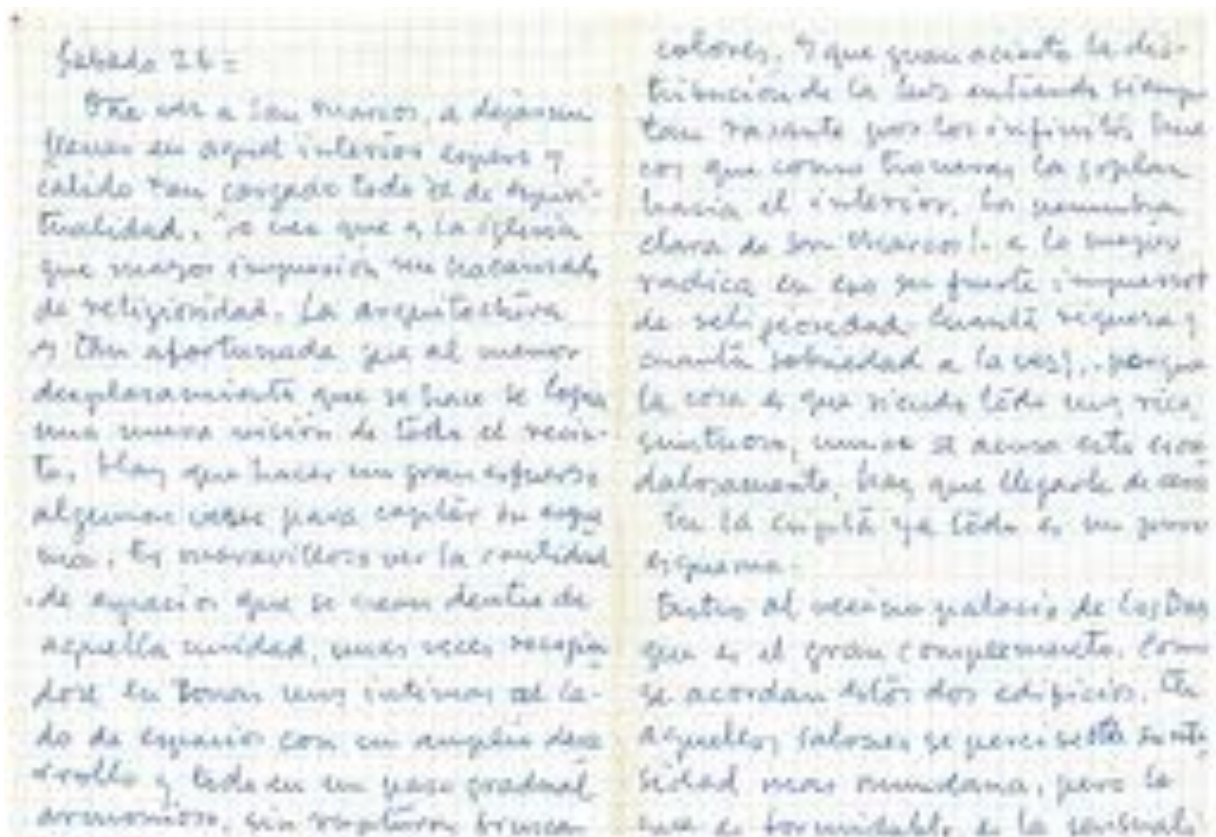 Sabado 26 =
Otra vez a San Marcos, a dejarse
llenar en aquel interior espeso y
calido tan cargado todo el de espiri-
tualidad. Yo creo que es la iglesia
que mayor impresión me ha causado
de religiosidad. La arquitectura
es tan afortunada que al menor
desplazamiento que se hace se logra
una nueva visión de todo el recin-
to. Hay que hacer un gran esfuerzo
algunas veces para captar su esque
ma. Es maravilloso ver la cantidad
de espacios que se crean dentro de
aquella unidad, unas veces recogien
dose en zonas muy intimas al la-
do de espacios con un amplio desa
rrollo y todo en un paso gradual
armonioso, sin rupturas bruscas
colores. Y que gran acierto la dis-
tribución de la luz entrando siempre
tan rasante por los infinitos hue
cos que como troneras la soplan
hacia el interior. La penumbra
clara de San Marcos!. a lo mejor
radica en eso su fuerte impresion
de religiosidad. Cuanta riqueza y
cuanta sobriedad a la vez!.. porque
la cosa es que siendo todo muy rico
suntuoso, nunca se acusa esto escan
dalosamente, hay que llegarle de cerca
En la cupula ya todo es un puro
esquema.
Entro al vecino palacio de los Dux
que es el gran complemento. Como
se acordan estos dos edificios. En
aquellos salones se percibe esta sun
sidad mas mundana, pero lo
que es formidable es la sensuali